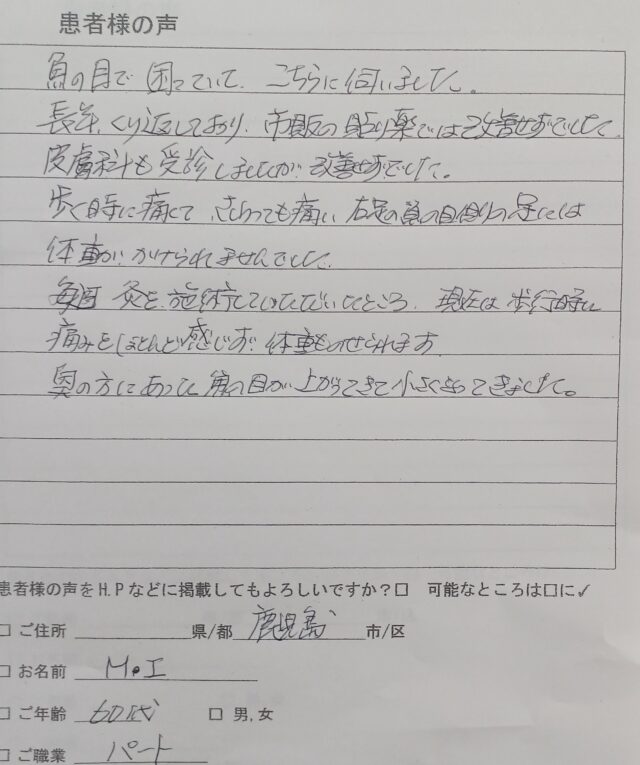 患者様の声
魚の目で困っていて、こちらに伺いました。
長年、くり返しており、市販の貼り薬では改善せずでした。
皮膚科も受診しましたが改善せずでした。
歩く時に痛くて、さわっても痛い、右足の魚の目側の足には
体重がかけられませんでした。
毎週 灸を施術していただいたところ、現在は歩行時に
痛みをほとんど感じず、体重ものせられます
奥の方にあった魚の目が上がってきて小さくなってきました。
患者様の声をH.Pなどに掲載してもよろしいですか?☐ 可能なところは☐に✓
☐ ご住所 県/都 鹿児島 市/区
☐ お名前 M・I
☐ ご年齢 60代 ☐ 男,女
☐ ご職業 パート